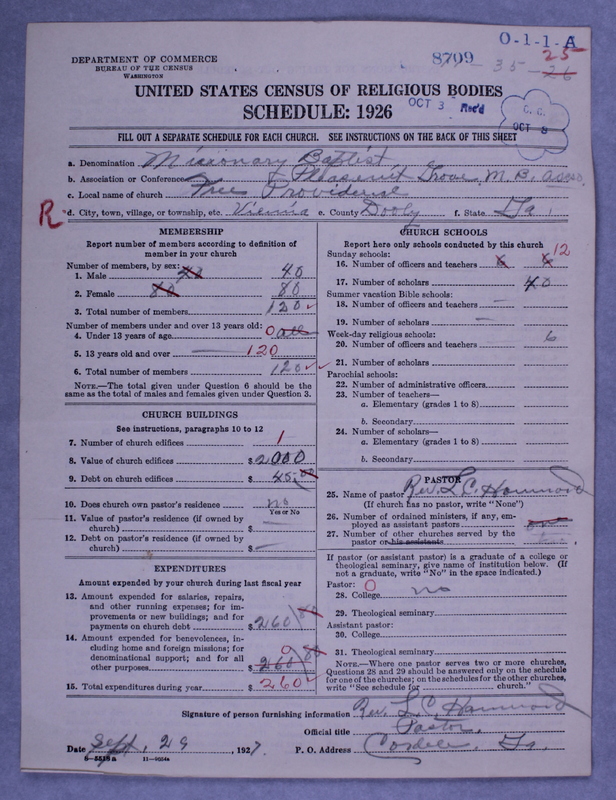 O-1-1-A
8709 35 25
26
DEPARTMENT OF COMMERCE
BUREAU OF THE CENSUS
WASHINGTON
UNITED STATES CENSUS OF RELIGIOUS BODIES
SCHEDULE: 1926
OCT 3 Rec'd
C. C.
OCT 3
FILL OUT A SEPARATE SCHEDULE FOR EACH CHURCH. SEE INSTRUCTIONS ON THE BACK OF THIS SHEET
a. Denomination Missionary Baptist
b. Association or Conference Pleasant Grove M. B. Asso.
c. Local name of church Free Providence
R *d. City, town, village, or township, etc. Vienna e. County Dooly f. State Ga.
MEMBERSHIP
Report number of members according to definition of member in your church
Number of members, by sex:
1. Male 40
2. Female 80 80
3. Total number of members 120
Number of members under and over 13 years old:
4. Under 13 years of age 0 all
5. 13 years old and over 120
6. Total number of members 120
NOTE.—The total given under Question 6 should be the same as the total of males and females given under Question 3.
CHURCH BUILDINGS
See instructions, paragraphs 10 to 12
7. Number of church edifices 1
8. Value of church edifices $2000
9. Debt on church edifices $45.00
10. Does church own pastor's residence? no
Yes or No
11. Value of pastor's residence (if owned by church) $ —
12. Debt on pastor's residence (if owned by church) $ —
EXPENDITURES
Amount expended by your church during last fiscal year
13. Amount expended for salaries, repairs, and other running expenses; for improvements or new buildings; and for payments on church debt $260.00
14. Amount expended for benevolences, including home and foreign missions; for denominational support; and for all other purposes 0 $260.00
15. Total expenditures during year $260
CHURCH SCHOOLS
Report here only schools conducted by this church
Sunday schools:
16. Number of officers and teachers 6 6 12
17. Number of scholars 40
Summer vacation Bible schools:
18. Number of officers and teachers —
19. Number of scholars —
Week-day religious schools:
20. Number of officers and teachers 6
21. Number of scholars
Parochial schools:
22. Number of administrative officers
23. Number of teachers—
a. Elementary (grades 1 to 8)
b. Secondary
24. Number of scholars—
a. Elementary (grades 1 to 8)
b. Secondary
PASTOR
25. Name of pastor Rev. L. C. Hammond
(If church has no pastor, write "None")
26. Number of ordained ministers, if any, employed as assistant pastors
27. Number of other churches served by the pastor or his assistants
If pastor (or assistant pastor) is a graduate of a college or theological seminary, give name of institution below. (If not a graduate, write "No" in the space indicated.)
Pastor: 0
28. College no
29. Theological seminary
Assistant pastor:
30. College
31. Theological seminary
NOTE.—Where one pastor serves two or more churches, Questions 28 and 29 should be answered only on the schedule for one of the churches; on the schedules for the other churches, write "See schedule for church."
Signature of person furnishing information Rev. L. C. Hammond
Official title Pastor.
Date Sept. 29, 1927. P. O. Address Cordele, Ga.
8-5518a 11-9054a